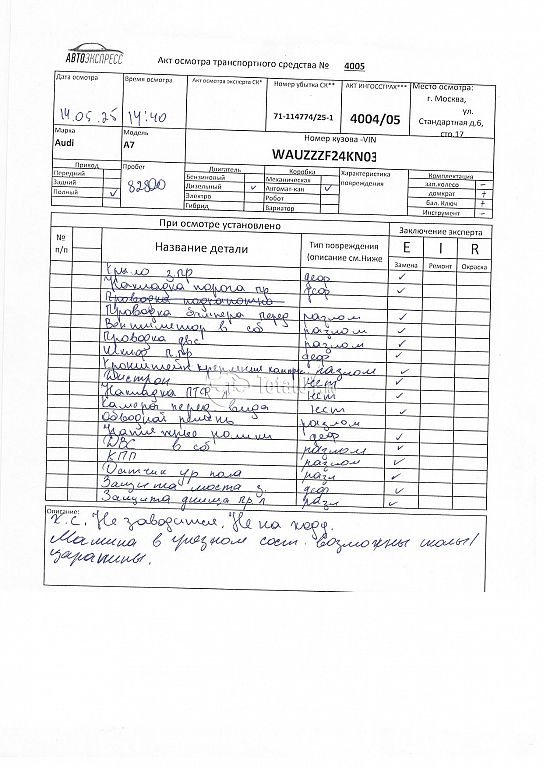 АВТОЭКСПРЕСС
Акт осмотра транспортного средства № 4005
Дата осмотра
Время осмотра
Акт осмотра эксперта СК*
Номер убытка СК**
АКТ ИНГОССТРАХ***
Место осмотра:
14.05.25
14:40
71-114774/25-1
4004/05
г. Москва,
ул.
Стандартная д.6,
стр.17
Марка
Audi
Модель
A7
Номер кузова -VIN
WAUZZZF24KN03
Привод
Передний
Задний
Полный ✓
Пробег
82800
Двигатель
Бензиновый
Дизельный ✓
Электро
Гибрид
Коробка
Механическая
Автомат-кая ✓
Робот
Вариатор
Характеристика
повреждения
Комплектация
зап.колесо –
домкрат +
бал. Ключ +
Инструмент –
При осмотре установлено
Заключение эксперта
№
п/п
Название детали
Тип повреждения
(описание см.Ниже
E I R
Замена Ремонт Окраска
Крыло з пр деф ✓
Накладка порога пр деф ✓
Проводка
Проводка бампера перед разлом ✓
Вентилятор в сб разлом ✓
Проводка двс разлом ✓
п.пр деф ✓
Кронштейн крепления разлом ✓
Дистрон нет ✓
Накладка ПТФ нет ✓
Камера перед. вида нет ✓
Обводной ремень разлом
Натяжные ролики деф ✓
ДВС в сб разлом ✓
КПП разлом ✓
Датчик ур пола разл ✓
Защита моста з. деф ✓
Защита днища пр л разл ✓
Описание:
К.С. Не заводится. Не на ходу.
Машина в грязном сост. Возможны сколы/
царапины.